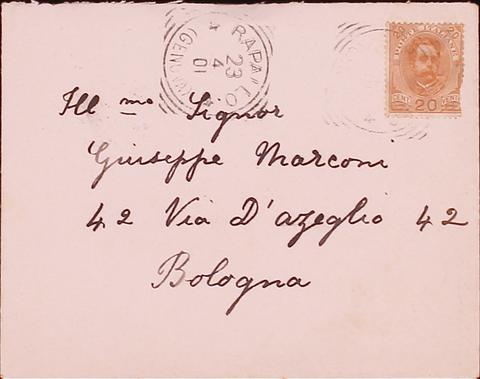 RAPALLO
23
4
01
(GENOVA)
20 20
POSTE ITALIANE
CENT 20 CENT
Ill mo Signor
Giuseppe Marconi
42 Via D'azeglio 42
Bologna